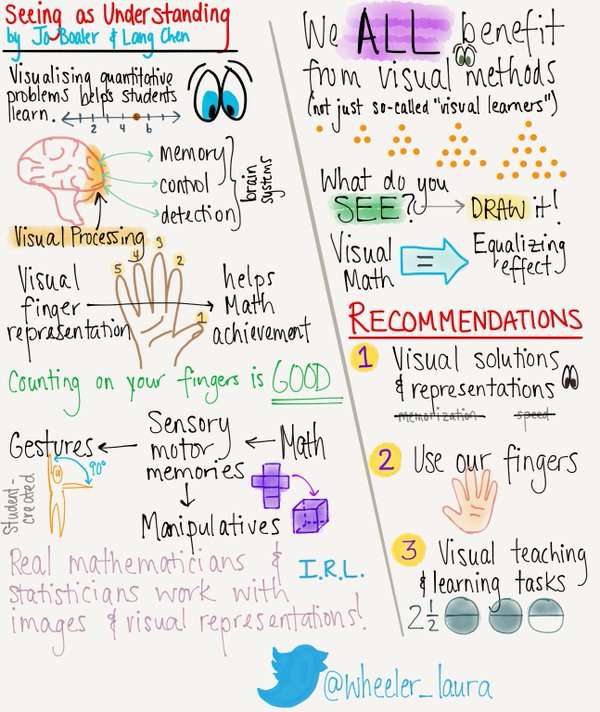 Seeing as Understanding
by Jo Boaler & Lang Chen
Visualising quantitative
problems helps students
learn.
2 4 6
memory
control
detection
brain
systems
Visual Processing
Visual
finger
representation
5 4 3 2 1
helps
Math
achievement
Counting on your fingers is GOOD
Gestures
Sensory
motor
memories
Math
Student-
created
90°
Manipulatives
Real mathematicians &
statisticians work with
images & visual representations!
I.R.L.
We ALL benefit
from visual methods
(not just so-called "visual learners")
What do you
SEE?
DRAW it!
Visual
Math
=
Equalizing
effect
RECOMMENDATIONS
1 Visual solutions
& representations
memorization speed
2 Use our fingers
3 Visual teaching
& learning tasks
2 1/2
@wheeler_laura